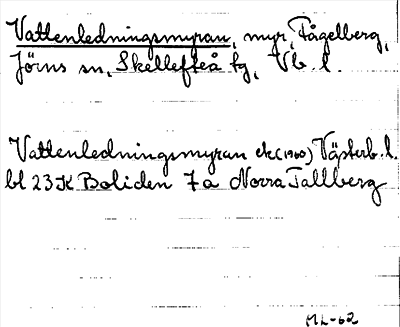 Vattenledningsmyran, myr, Fågelberg,
Jörns sn, Skellefteå tg, Vb. l.
Vattenledningsmyran ek (1960) Västerb. l.
bl 23 K Boliden 7 a Norra Tallberg
ML-62